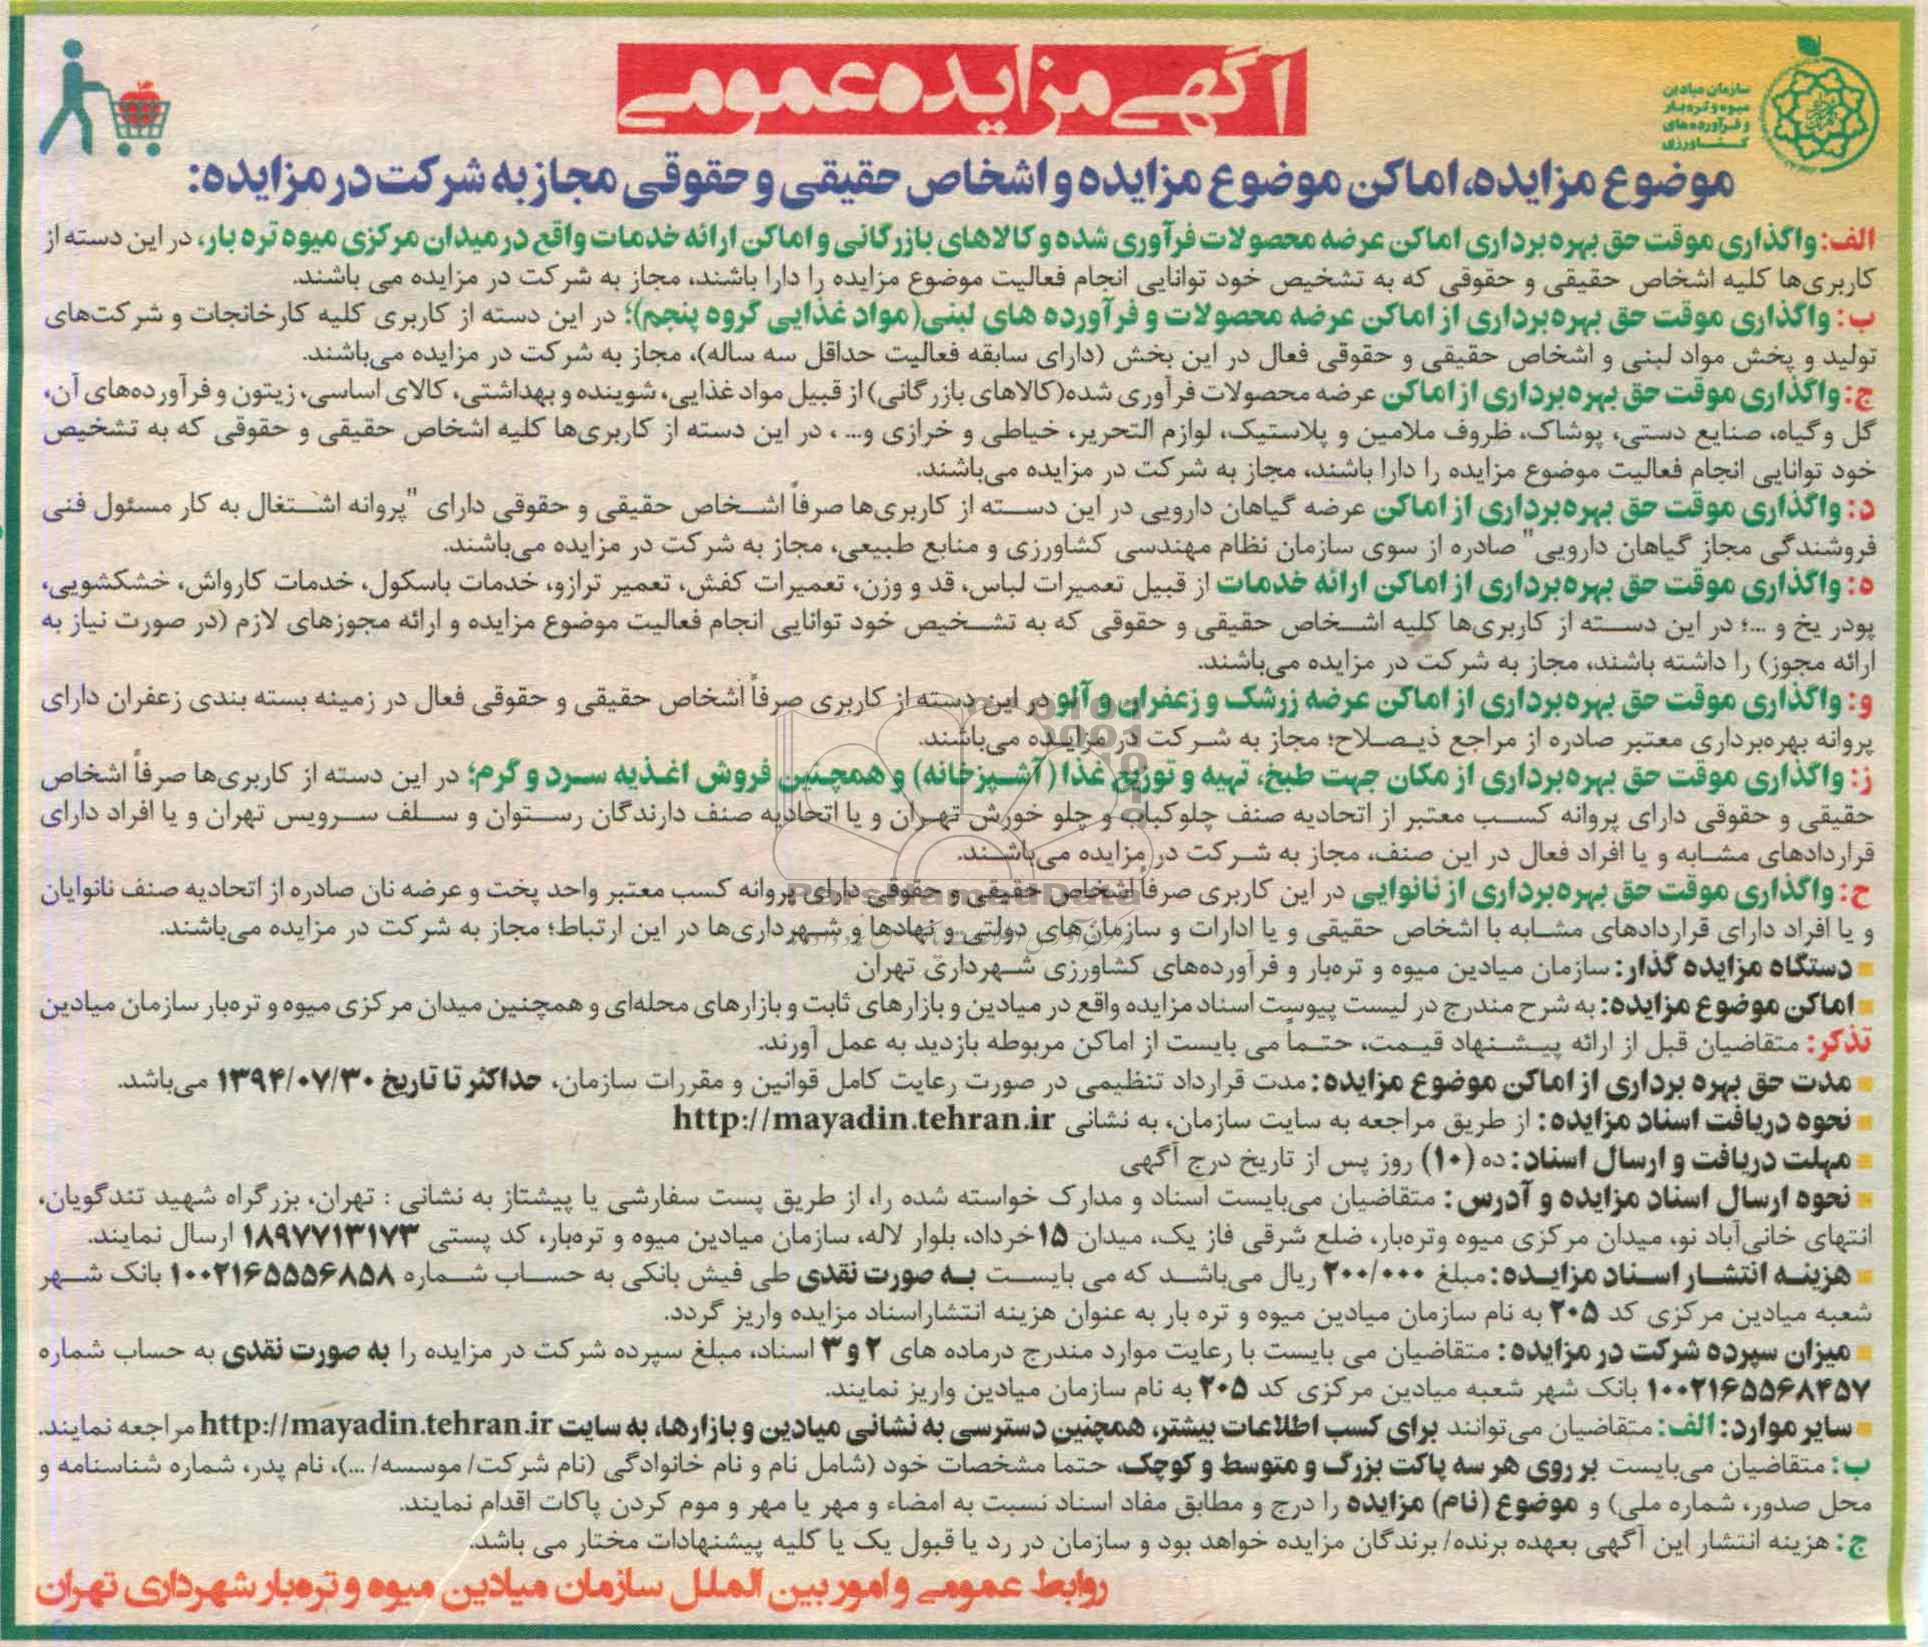 سازمان میادین
میوه و تره‌بار
و فرآورده‌های
کشاورزی
آگهی مزایده عمومی
موضوع مزایده، اماکن موضوع مزایده و اشخاص حقیقی و حقوقی مجاز به شرکت در مزایده:
الف: واگذاری موقت حق بهره‌برداری اماکن عرضه محصولات فرآوری شده و کالاهای بازرگانی و اماکن ارائه خدمات واقع در میدان مرکزی میوه تره بار، در این دسته از
کاربری‌ها کلیه اشخاص حقیقی و حقوقی که به تشخیص خود توانایی انجام فعالیت موضوع مزایده را دارا باشند، مجاز به شرکت در مزایده می باشند.
ب: واگذاری موقت حق بهره‌برداری از اماکن عرضه محصولات و فرآورده های لبنی(مواد غذایی گروه پنجم)؛ در این دسته از کاربری کلیه کارخانجات و شرکت‌های
تولید و پخش مواد لبنی و اشخاص حقیقی و حقوقی فعال در این بخش (دارای سابقه فعالیت حداقل سه ساله)، مجاز به شرکت در مزایده می‌باشند.
ج: واگذاری موقت حق بهره‌برداری از اماکن عرضه محصولات فرآوری شده(کالاهای بازرگانی) از قبیل مواد غذایی، شوینده و بهداشتی، کالای اساسی، زیتون و فرآورده‌های آن،
گل و گیاه، صنایع دستی، پوشاک، ظروف ملامین و پلاستیک، لوازم التحریر، خیاطی و خرازی و... ، در این دسته از کاربری‌ها کلیه اشخاص حقیقی و حقوقی که به تشخیص
خود توانایی انجام فعالیت موضوع مزایده را دارا باشند، مجاز به شرکت در مزایده می‌باشند.
د: واگذاری موقت حق بهره‌برداری از اماکن عرضه گیاهان دارویی در این دسته از کاربری‌ها صرفاً اشخاص حقیقی و حقوقی دارای "پروانه اشتغال به کار مسئول فنی
فروشندگی مجاز گیاهان دارویی" صادره از سوی سازمان نظام مهندسی کشاورزی و منابع طبیعی، مجاز به شرکت در مزایده می‌باشند.
ه: واگذاری موقت حق بهره‌برداری از اماکن ارائه خدمات از قبیل تعمیرات لباس، قد و وزن، تعمیرات کفش، تعمیر ترازو، خدمات باسکول، خدمات کارواش، خشکشویی،
پودر یخ و ...؛ در این دسته از کاربری‌ها کلیه اشخاص حقیقی و حقوقی که به تشخیص خود توانایی انجام فعالیت موضوع مزایده و ارائه مجوزهای لازم (در صورت نیاز به
ارائه مجوز) را داشته باشند، مجاز به شرکت در مزایده می‌باشند.
و: واگذاری موقت حق بهره‌برداری از اماکن عرضه زرشک و زعفران و آلو در این دسته از کاربری صرفاً اشخاص حقیقی و حقوقی فعال در زمینه بسته بندی زعفران دارای
پروانه بهره‌برداری معتبر صادره از مراجع ذیصلاح؛ مجاز به شرکت در مزایده می‌باشند.
ز: واگذاری موقت حق بهره‌برداری از مکان جهت طبخ، تهیه و توزیع غذا (آشپزخانه) و همچنین فروش اغذیه سرد و گرم؛ در این دسته از کاربری‌ها صرفاً اشخاص
حقیقی و حقوقی دارای پروانه کسب معتبر از اتحادیه صنف چلوکباب و چلو خورش تهران و یا اتحادیه صنف دارندگان رستوان و سلف سرویس تهران و یا افراد دارای
قراردادهای مشابه و یا افراد فعال در این صنف، مجاز به شرکت در مزایده می‌باشند.
ح: واگذاری موقت حق بهره‌برداری از نانوایی در این کاربری صرفاً اشخاص حقیقی و حقوقی دارای پروانه کسب معتبر واحد پخت و عرضه نان صادره از اتحادیه صنف نانوایان
و یا افراد دارای قراردادهای مشابه با اشخاص حقیقی و یا ادارات و سازمان‌های دولتی و نهادها و شهرداری‌ها در این ارتباط؛ مجاز به شرکت در مزایده می‌باشند.
دستگاه مزایده گذار: سازمان میادین میوه و تره‌بار و فرآورده‌های کشاورزی شهرداری تهران
اماکن موضوع مزایده: به شرح مندرج در لیست پیوست اسناد مزایده واقع در میادین و بازارهای ثابت و بازارهای محله‌ای و همچنین میدان مرکزی میوه و تره‌بار سازمان میادین
تذکر: متقاضیان قبل از ارائه پیشنهاد قیمت، حتماً می بایست از اماکن مربوطه بازدید به عمل آورند.
مدت حق بهره برداری از اماکن موضوع مزایده: مدت قرارداد تنظیمی در صورت رعایت کامل قوانین و مقررات سازمان، حداکثر تا تاریخ ۱۳۹۴/۰۷/۳۰ می‌باشد.
نحوه دریافت اسناد مزایده: از طریق مراجعه به سایت سازمان، به نشانی http://mayadin.tehran.ir
مهلت دریافت و ارسال اسناد: ده (۱۰) روز پس از تاریخ درج آگهی
نحوه ارسال اسناد مزایده و آدرس: متقاضیان می‌بایست اسناد و مدارک خواسته شده را، از طریق پست سفارشی یا پیشتاز به نشانی : تهران، بزرگراه شهید تندگویان،
انتهای خانی‌آباد نو، میدان مرکزی میوه وتره‌بار، ضلع شرقی فاز یک، میدان ۱۵خرداد، بلوار لاله، سازمان میادین میوه و تره‌بار، کد پستی ۱۸۹۷۷۱۳۱۷۳ ارسال نمایند.
هزینه انتشار اسناد مزایده: مبلغ ۲۰۰/۰۰۰ ریال می‌باشد که می بایست به صورت نقدی طی فیش بانکی به حساب شماره ۱۰۰۲۱۶۵۵۵۶۸۵۸ بانک شهر
شعبه میادین مرکزی کد ۲۰۵ به نام سازمان میادین میوه و تره بار به عنوان هزینه انتشاراسناد مزایده واریز گردد.
میزان سپرده شرکت در مزایده: متقاضیان می بایست با رعایت موارد مندرج درماده های ۲ و ۳ اسناد، مبلغ سپرده شرکت در مزایده را به صورت نقدی به حساب شماره
۱۰۰۲۱۶۵۵۶۸۴۵۷ بانک شهر شعبه میادین مرکزی کد ۲۰۵ به نام سازمان میادین واریز نمایند.
سایر موارد: الف: متقاضیان می‌توانند برای کسب اطلاعات بیشتر، همچنین دسترسی به نشانی میادین و بازارها، به سایت http://mayadin.tehran.ir مراجعه نمایند.
ب: متقاضیان می‌بایست بر روی هر سه پاکت بزرگ و متوسط و کوچک، حتما مشخصات خود (شامل نام و نام خانوادگی (نام شرکت/ موسسه/ ...)، نام پدر، شماره شناسنامه و
محل صدور، شماره ملی) و موضوع (نام) مزایده را درج و مطابق مفاد اسناد نسبت به امضاء و مهر یا مهر و موم کردن پاکات اقدام نمایند.
ج: هزینه انتشار این آگهی بعهده برنده/ برندگان مزایده خواهد بود و سازمان در رد یا قبول یک یا کلیه پیشنهادات مختار می باشد.
روابط عمومی و امور بین الملل سازمان میادین میوه و تره‌بار شهرداری تهران